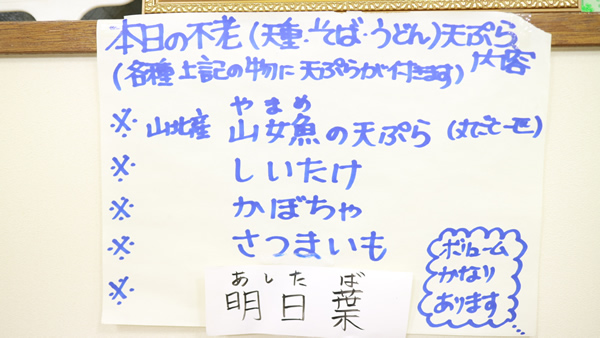 本日の不老(天重・そば・うどん)天ぷら内容
(各種上記の物に天ぷらが付きます)
※ 山北産 山女魚の天ぷら (丸ごと一匹)
やまめ
※ しいたけ
※ かぼちゃ
※ さつまいも
※ 明日葉
あしたば
ボリューム
かなり
あります